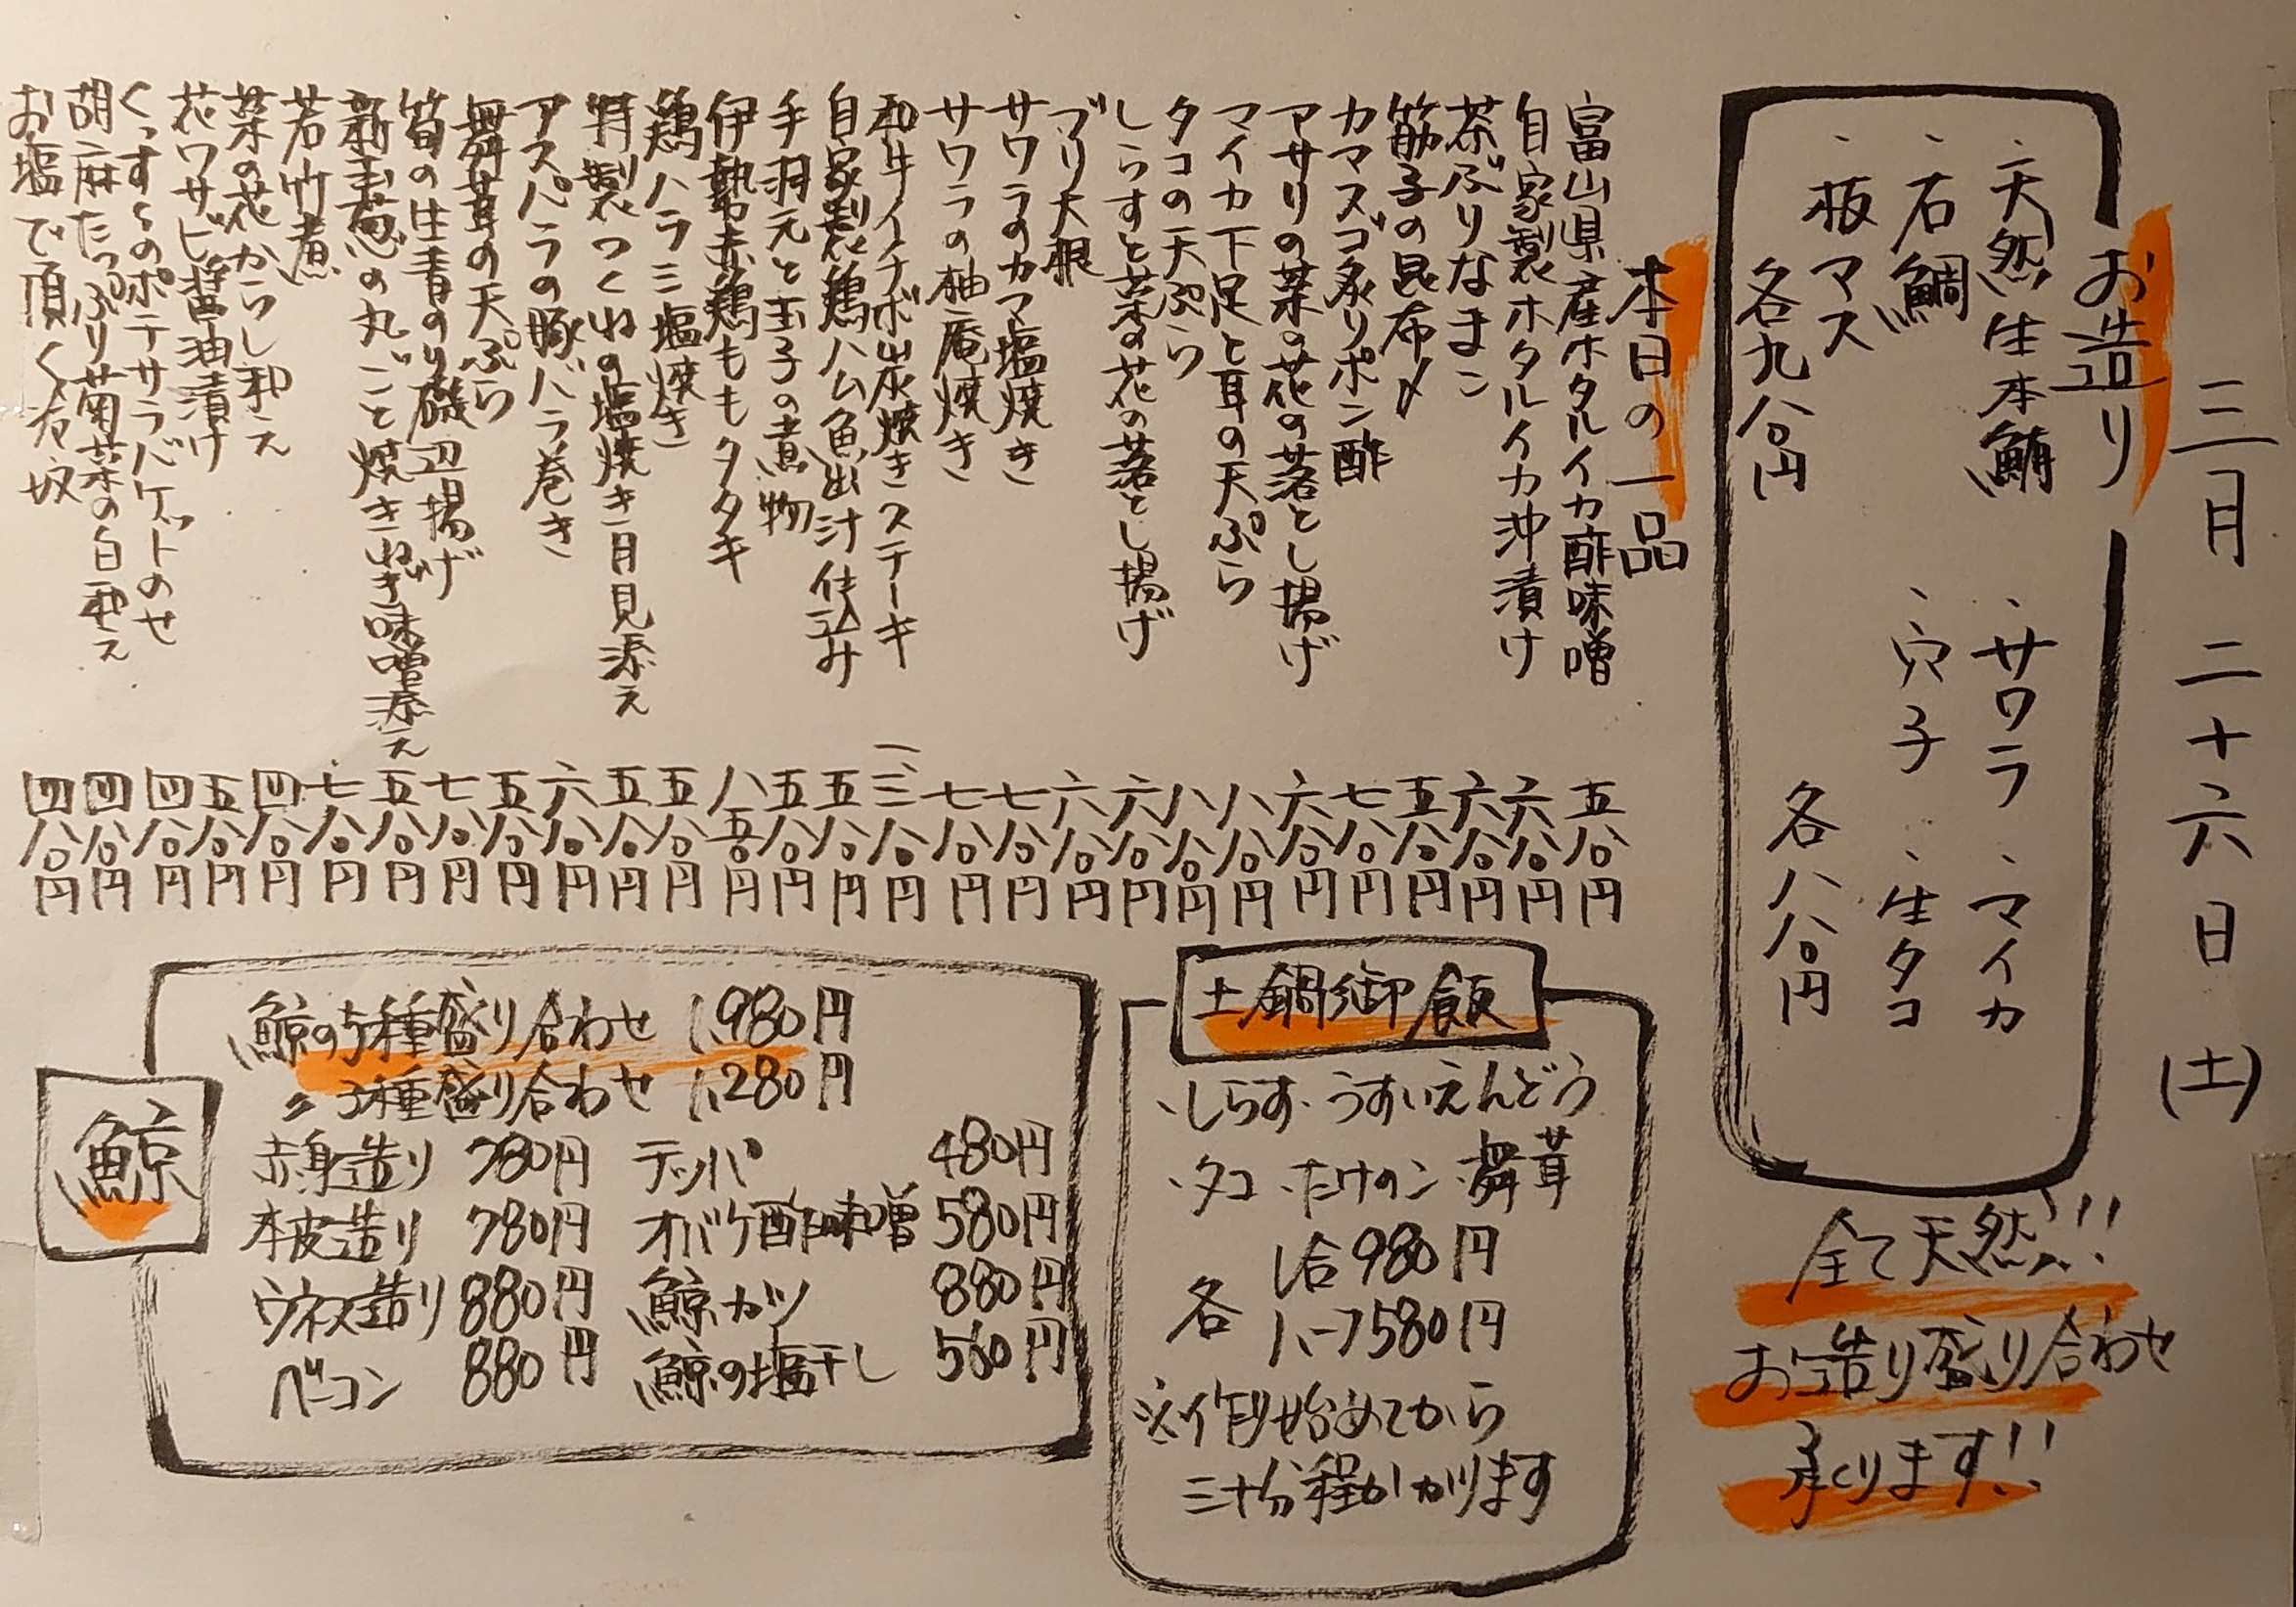 三月二十六日(土)
お造り
・天然生本鮪
・石鯛
・板マス
各九八〇円
・サワラ ・マイカ
・穴子 ・生タコ
各八八〇円
全て天然!!
お造り盛り合わせ
承ります!!
本日の一品
富山県産ホタルイカ酢味噌 五八〇円
自家製ホタルイカ沖漬け 六八〇円
茶ぶりなまこ 六八〇円
筋子の昆布〆 五八〇円
カマスゴ炙りポン酢 七八〇円
アサリの菜の花の落とし揚げ 六八〇円
マイカ下足と耳の天ぷら 八八〇円
タコの天ぷら 八八〇円
しらすと菜の花の落とし揚げ 六八〇円
ブリ大根 六八〇円
サワラのカマ塩焼き 七八〇円
サワラの柚庵焼き 七八〇円
和牛イチボ炭焼きステーキ 一三八〇円
自家製鶏ハム魚出汁仕込み 五八〇円
手羽元と玉子の煮物 五八〇円
伊勢赤鶏ももタタキ 八五〇円
鶏ハラミ塩焼き 五八〇円
特製つくねの塩焼き月見添え 五八〇円
アスパラの豚バラ巻き 六八〇円
舞茸の天ぷら 五八〇円
筍の生青のり磯辺揚げ 七八〇円
新玉葱の丸ごと焼きねぎ味噌添え 五八〇円
若竹煮 七八〇円
菜の花からし和え 四八〇円
花ワサビ醤油漬け 五八〇円
くずしのポテサラバケットのせ 四八〇円
胡麻たっぷり菊菜の白和え 四八〇円
お塩で頂く冷奴 四八〇円
土鍋御飯
・しらす・うすいえんどう
・タコ・たけのこ・舞茸
各
1合980円
ハーフ580円
※作り始めてから
三十分程かかります
鯨
鯨の5種盛り合わせ 1,980円
〃 3種盛り合わせ 1,280円
赤身造り 780円 テッパ 480円
本皮造り 780円 オバケ酢味噌 580円
ウネス造り 880円 鯨カツ 880円
ベーコン 880円 鯨の塩干し 560円